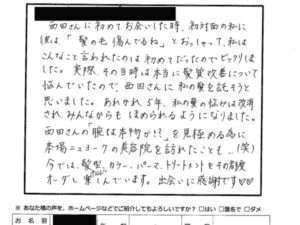 西田さんに初めてお会いした時、初対面の私に
彼は「髪の毛傷んでるね」とおっしゃって、私は
こんなこと言われたのは初めてだったのでビックリしま
した。実際、その当時は本当に髪質改善について
悩んでいたので、西田さんに私の髪を託そうと
思いました。あれから5年、私の髪の悩みは改善
され みんなからも ほめられるようになりました。
西田さんの「腕は本物か!?」を見極める為に
本場ニューヨークの美容院を訪れたことも…(笑)
今では、髪型、カラー、パーマ、トリートメントもその都度
オーダーし楽しんでいます。出会いに感謝です♡♡
※ あなた様の声を、ホームページなどでご紹介してもよろしいですか? □はい □匿名で □ダメ
お 名 前